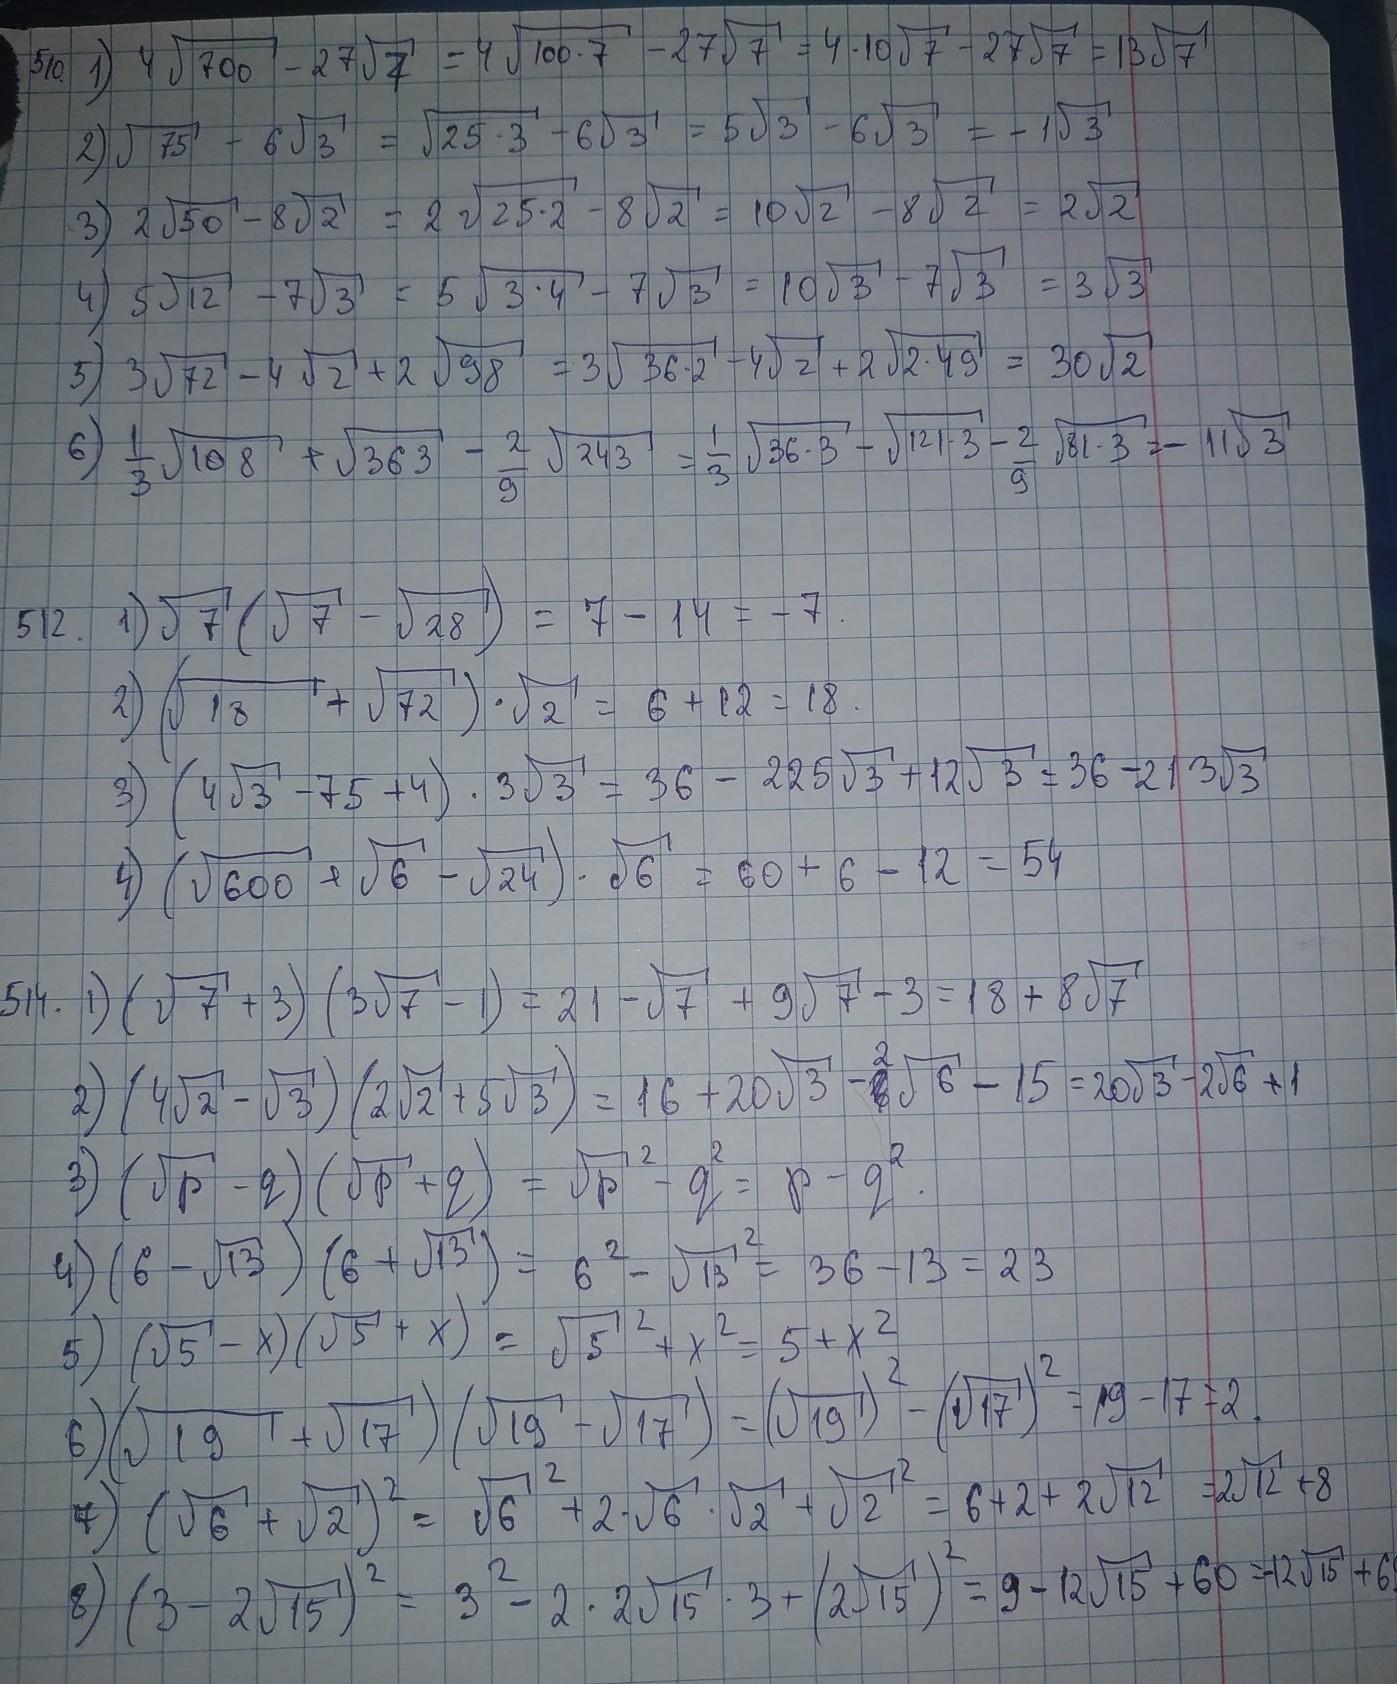 510. 1) 4√700 - 27√7 = 4√100·7 - 27√7 = 4·10√7 - 27√7 = 13√7
2) √75 - 6√3 = √25·3 - 6√3 = 5√3 - 6√3 = -1√3
3) 2√50 - 8√2 = 2√25·2 - 8√2 = 10√2 - 8√2 = 2√2
4) 5√12 - 7√3 = 5√3·4 - 7√3 = 10√3 - 7√3 = 3√3
5) 3√72 - 4√2 + 2√98 = 3√36·2 - 4√2 + 2√2·49 = 30√2
6) 1/3√108 + √363 - 2/9√243 = 1/3√36·3 - √121·3 - 2/9√81·3 = - 11√3
512. 1) √7(√7 - √28) = 7 - 14 = -7.
2) (√18 + √72)·√2 = 6 + 12 = 18.
3) (4√3 - 75 + 4)·3√3 = 36 - 225√3 + 12√3 = 36 - 213√3
4) (√600 + √6 - √24)·√6 = 60 + 6 - 12 = 54
514. 1) (√7 + 3)(3√7 - 1) = 21 - √7 + 9√7 - 3 = 18 + 8√7
2) (4√2 - √3)(2√2 + 5√3) = 16 + 20√3 - 2√6 - 15 = 20√3 - 2√6 + 1
3) (√p - q)(√p + q) = √p² - q² = p - q².
4) (6 - √13)(6 + √13) = 6² - √13² = 36 - 13 = 23
5) (√5 - x)(√5 + x) = √5² + x² = 5 + x²
6) (√19 + √17)(√19 - √17) = (√19)² - (√17)² = 19 - 17 = 2.
7) (√6 + √2)² = √6² + 2·√6·√2 + √2² = 6 + 2 + 2√12 = 2√12 + 8
8) (3 - 2√15)² = 3² - 2·2√15·3 + (2√15)² = 9 - 12√15 + 60 = -12√15 + 6